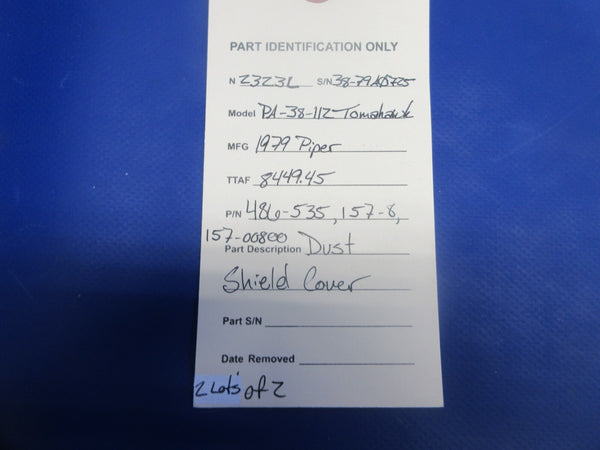 PART IDENTIFICATION ONLY
N 2323L S/N 38-79A0725
Model PA-38-112 Tomahawk
MFG 1979 Piper
TTAF 8449.45
P/N 486-535, 157-8,
157-00800
Part Description Dust
Shield Cover
Part S/N
Date Removed
2 Lots of 2